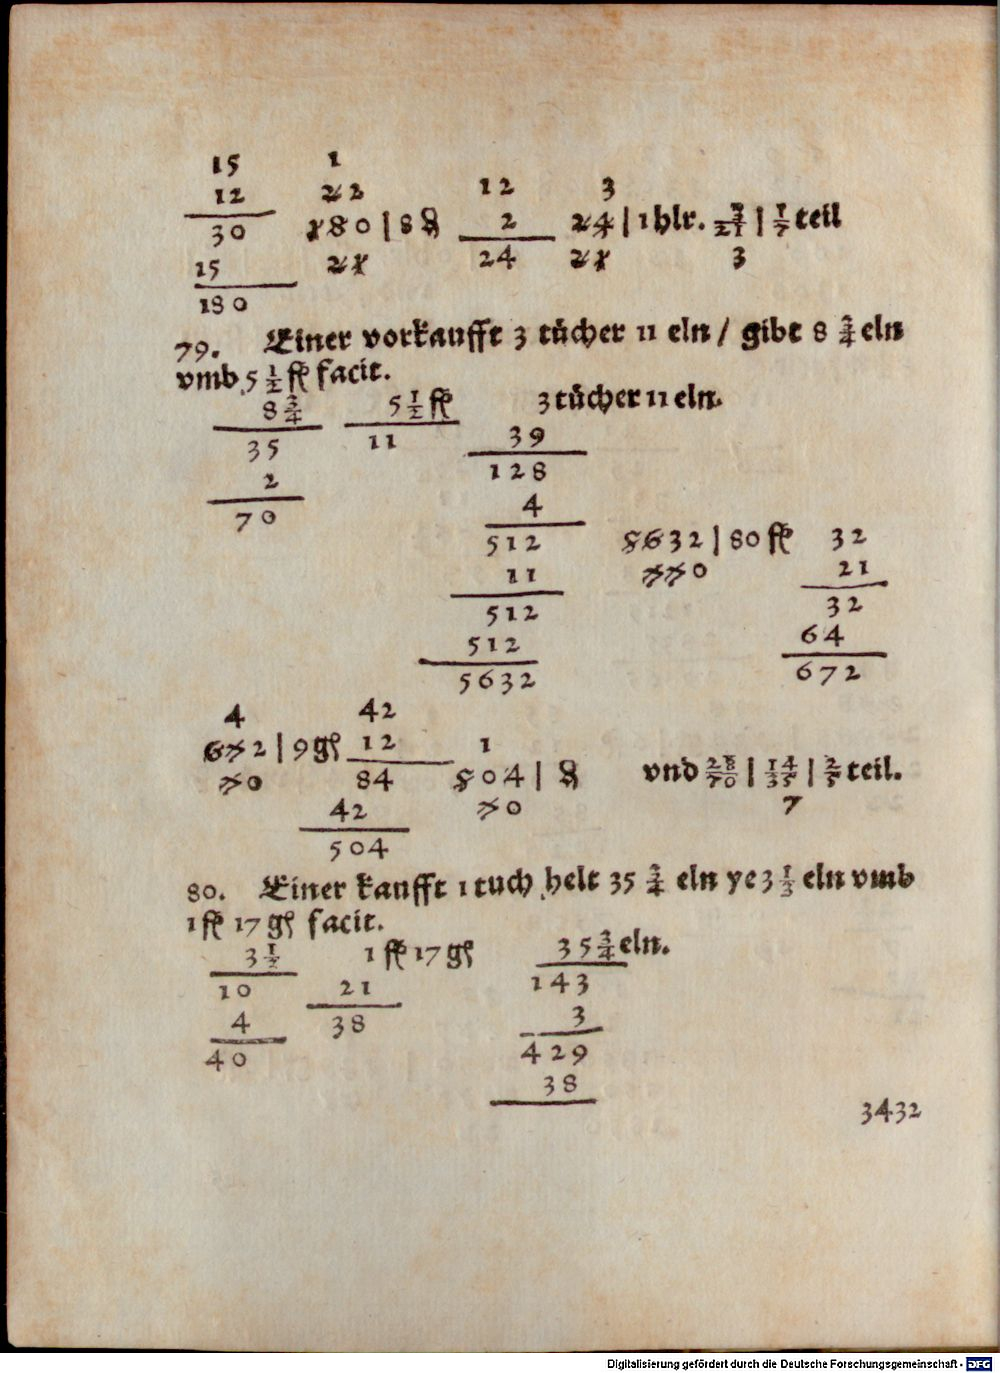 15 1
12 22 12 3
30 180 | 8 ₰ 2 24 | 1 hlr. 3/21 | 1/7 teil
15 21 24 21 3
180
79. Einer vorkaufft 3 tücher 11 eln / gibt 8 3/4 eln
vmb 5 1/2 fl facit.
8 3/4 5 1/2 fl 3 tücher 11 eln.
35 11 39
2 128
70 4
512 5632 | 80 fl 32
11 770 21
512 32
512 64
5632 672
4 42
672 | 9 gß 12 1
70 84 504 | ₰ vnd 28/70 | 14/35 | 2/5 teil.
42 70 7
504
80. Einer kaufft 1 tuch helt 35 3/4 eln ye 3 1/3 eln vmb
1 fl 17 gß facit.
3 1/2 1 fl 17 gß 35 3/4 eln.
10 21 143
4 38 3
40 429
38
3432
Digitalisierung gefördert durch die Deutsche Forschungsgemeinschaft - DFG